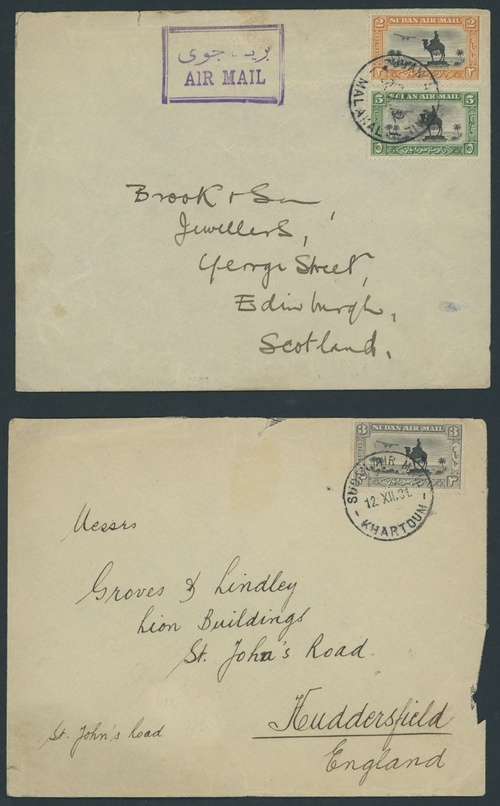 بريد جوى
AIR MAIL
2 SUDAN AIR MAIL 2
5 SUDAN AIR MAIL 5
MALAKAL
Brook & Son
Jewellers,
George Street,
Edinburgh,
Scotland.
3 SUDAN AIR MAIL 3
AIR MAIL
12.XII.31.
- KHARTOUM -
Messrs
Groves & Lindley
Lion Buildings
St. John's Road
Huddersfield
England
St. John's Road